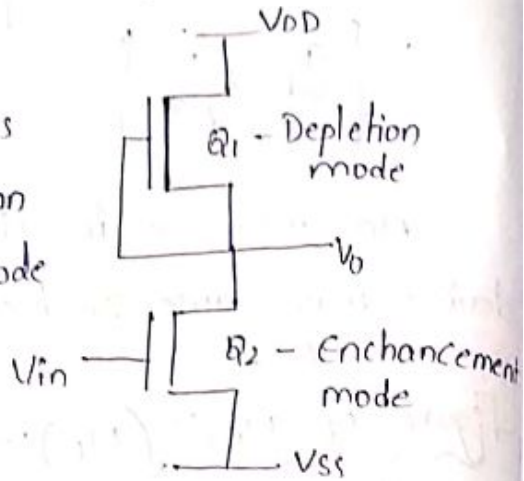 VDD
s
Q1 - Depletion
mode
on
ode
Vo
Vin
Q2 - Enchancement
mode
VSS